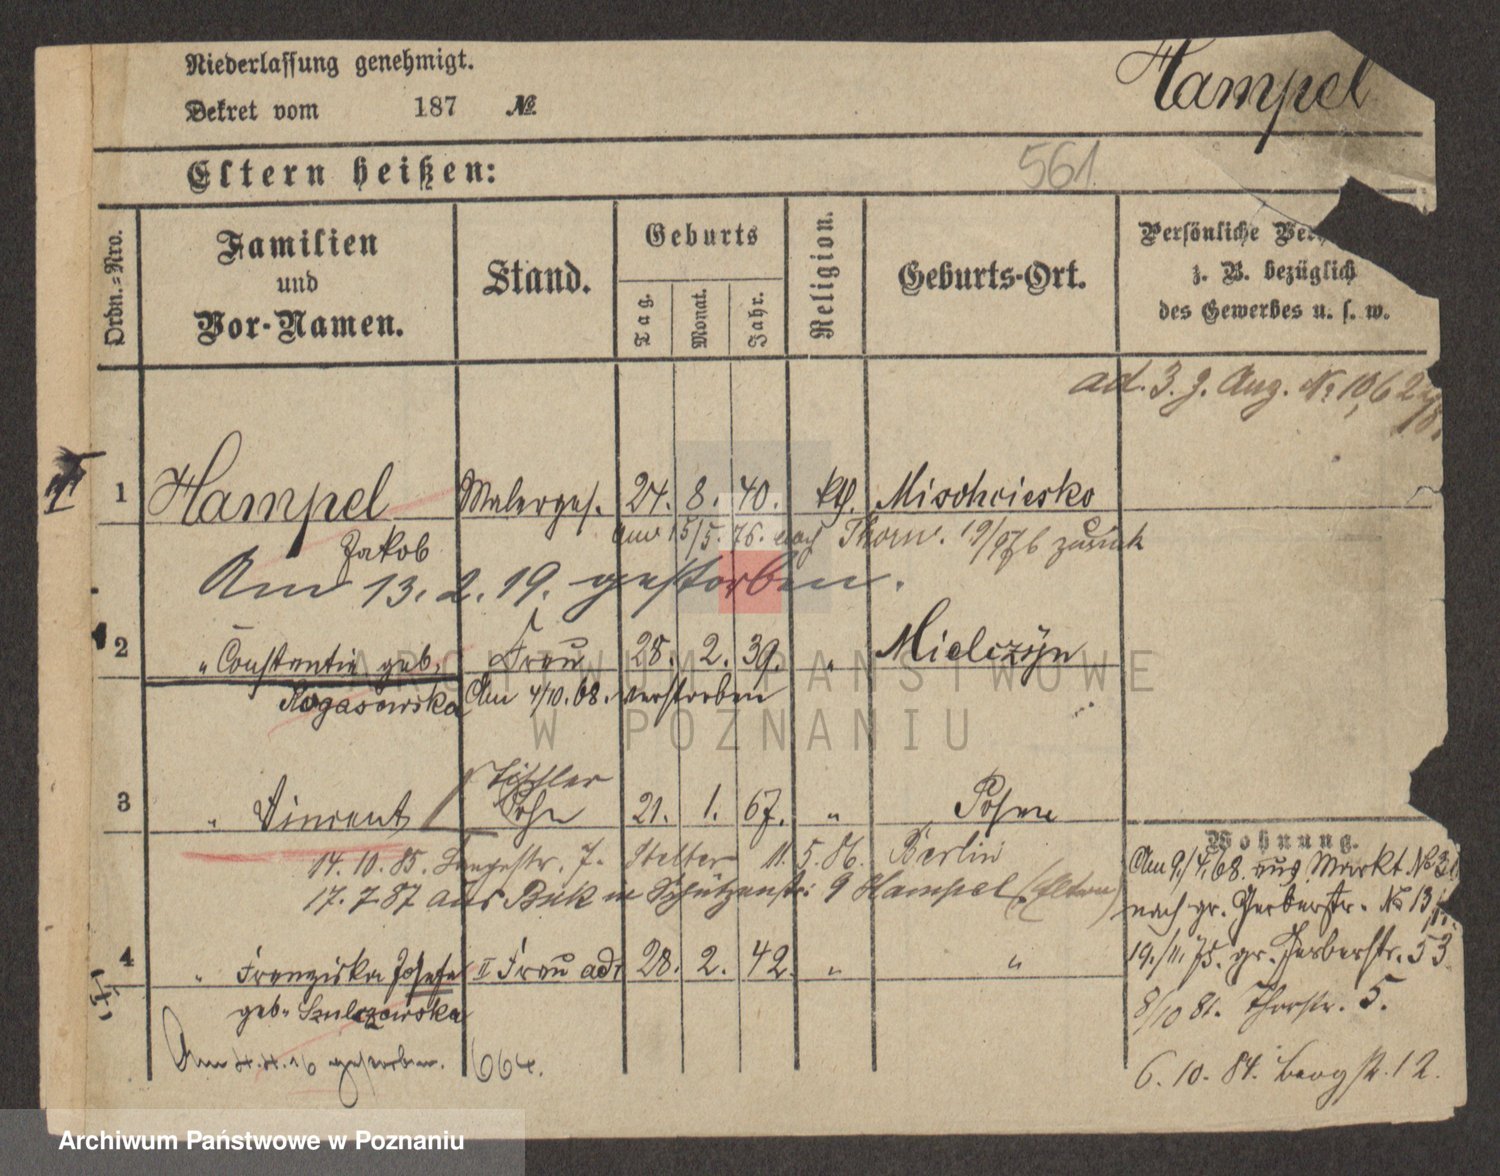 Niederlassung genehmigt.
Hampel
Dekret vom 187 №
Eltern heißen:
561
Ordn.=Nro.
Familien
und
Vor-Namen.
Stand.
Geburts
Tag.
Monat.
Jahr.
Religion.
Geburts-Ort.
Persönliche
z. B. bezüglich
des Gewerbes u. s. w.
ad. 3. J. Aug. № 1062
1 Hampel Malerges. 24. 8. 40. kth. Mischciesko
Jakob
am 15/5. 76. nach Thorn. 19/976 zurück
Am 13. 2. 19. gestorben.
2 " Constantia geb. Frau 28. 2. 39. " Mielczyn
Rogasowska Am 4/10. 68. verstorben
Tischler
3 " Vincent Sohn 21. 1. 67. " Posen
14. 10. 85. Langestr. 7. 11. 5. 86. Berlin
17. 7 87 aus Buk Schützenstr. 9 Hampel (Eltern)
4 " Franziska Josefa II Frau ad1 28. 2. 42. " "
geb. Szulczewska
Am gestorben. 664.
Wohnung.
Am 9/4. 68. aus Markt №
nach gr. Gerberstr. № 13
19./11. 75. gr. Gerberstr. 53
8/10 81. Thorstr. 5.
6. 10. 84. Bergstr. 12.
ARCHIWUM PAŃSTWOWE
W POZNANIU
Archiwum Państwowe w Poznaniu